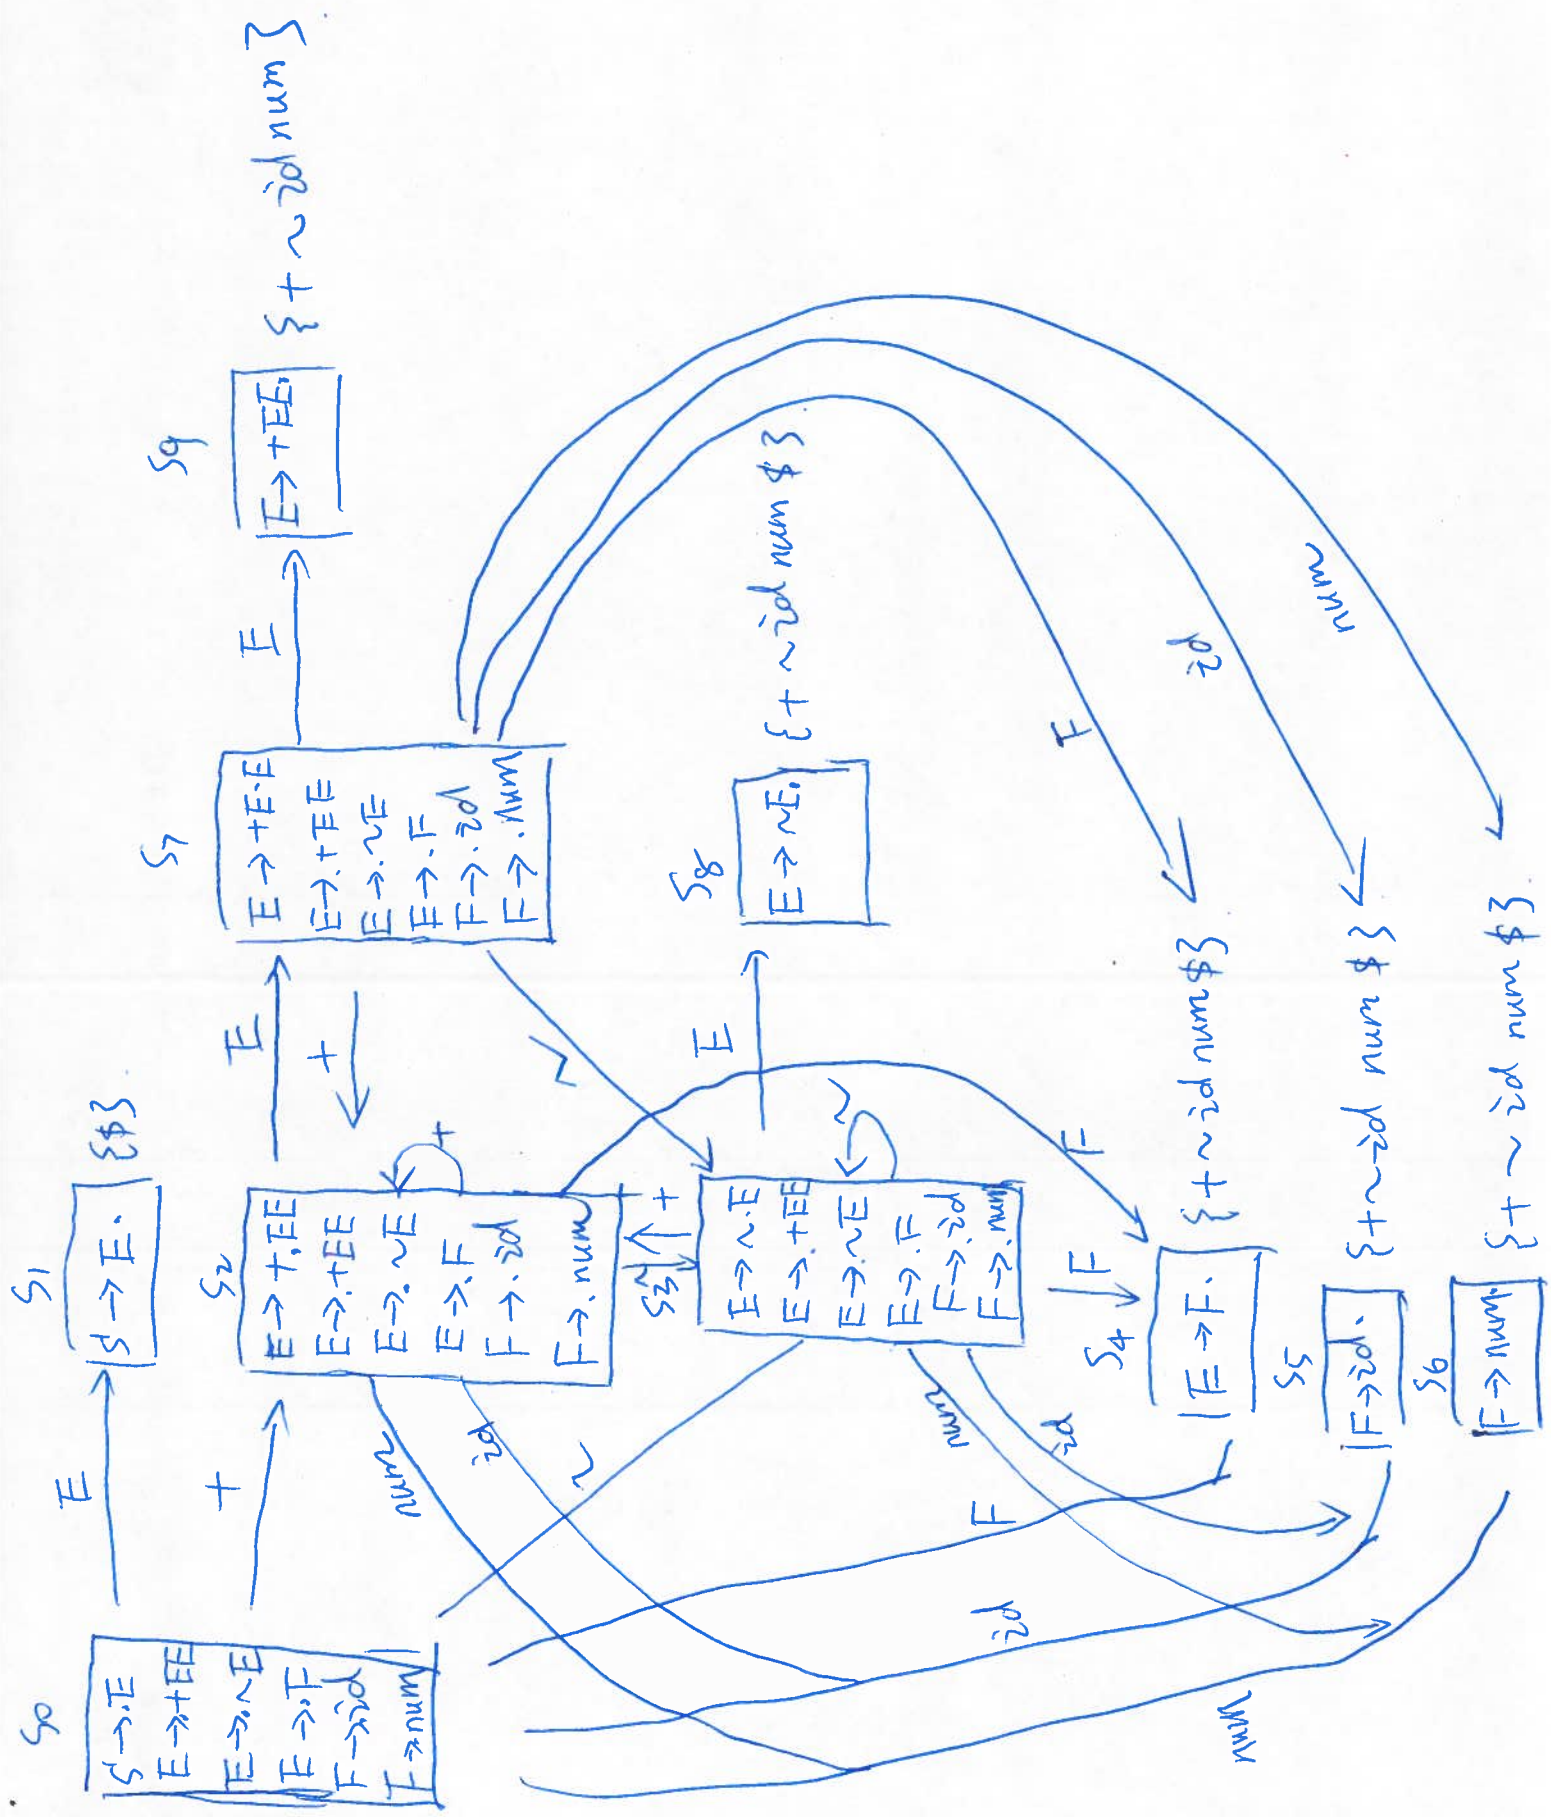 S0
S → .E
E → .+EE
E → .~E
E → .F
F → .id
F → .num
E
S1
S → E.
{$}
+
S2
E → +.EE
E → .+EE
E → .~E
E → .F
F → .id
F → .num
+
E
+
S7
E → +E.E
E → .+EE
E → .~E
E → .F
F → .id
F → .num
E
S9
E → +EE.
{+ ~ id num}
~
~
~
+
S3
E → ~.E
E → .+EE
E → .~E
E → .F
F → .id
F → .num
~
E
S8
E → ~E.
{+ ~ id num $}
num
id
num
id
F
F
F
S4
E → F.
{+ ~ id num $}
F
id
S5
F → id.
{+ ~ id num $}
id
num
S6
F → num.
{+ ~ id num $}
num